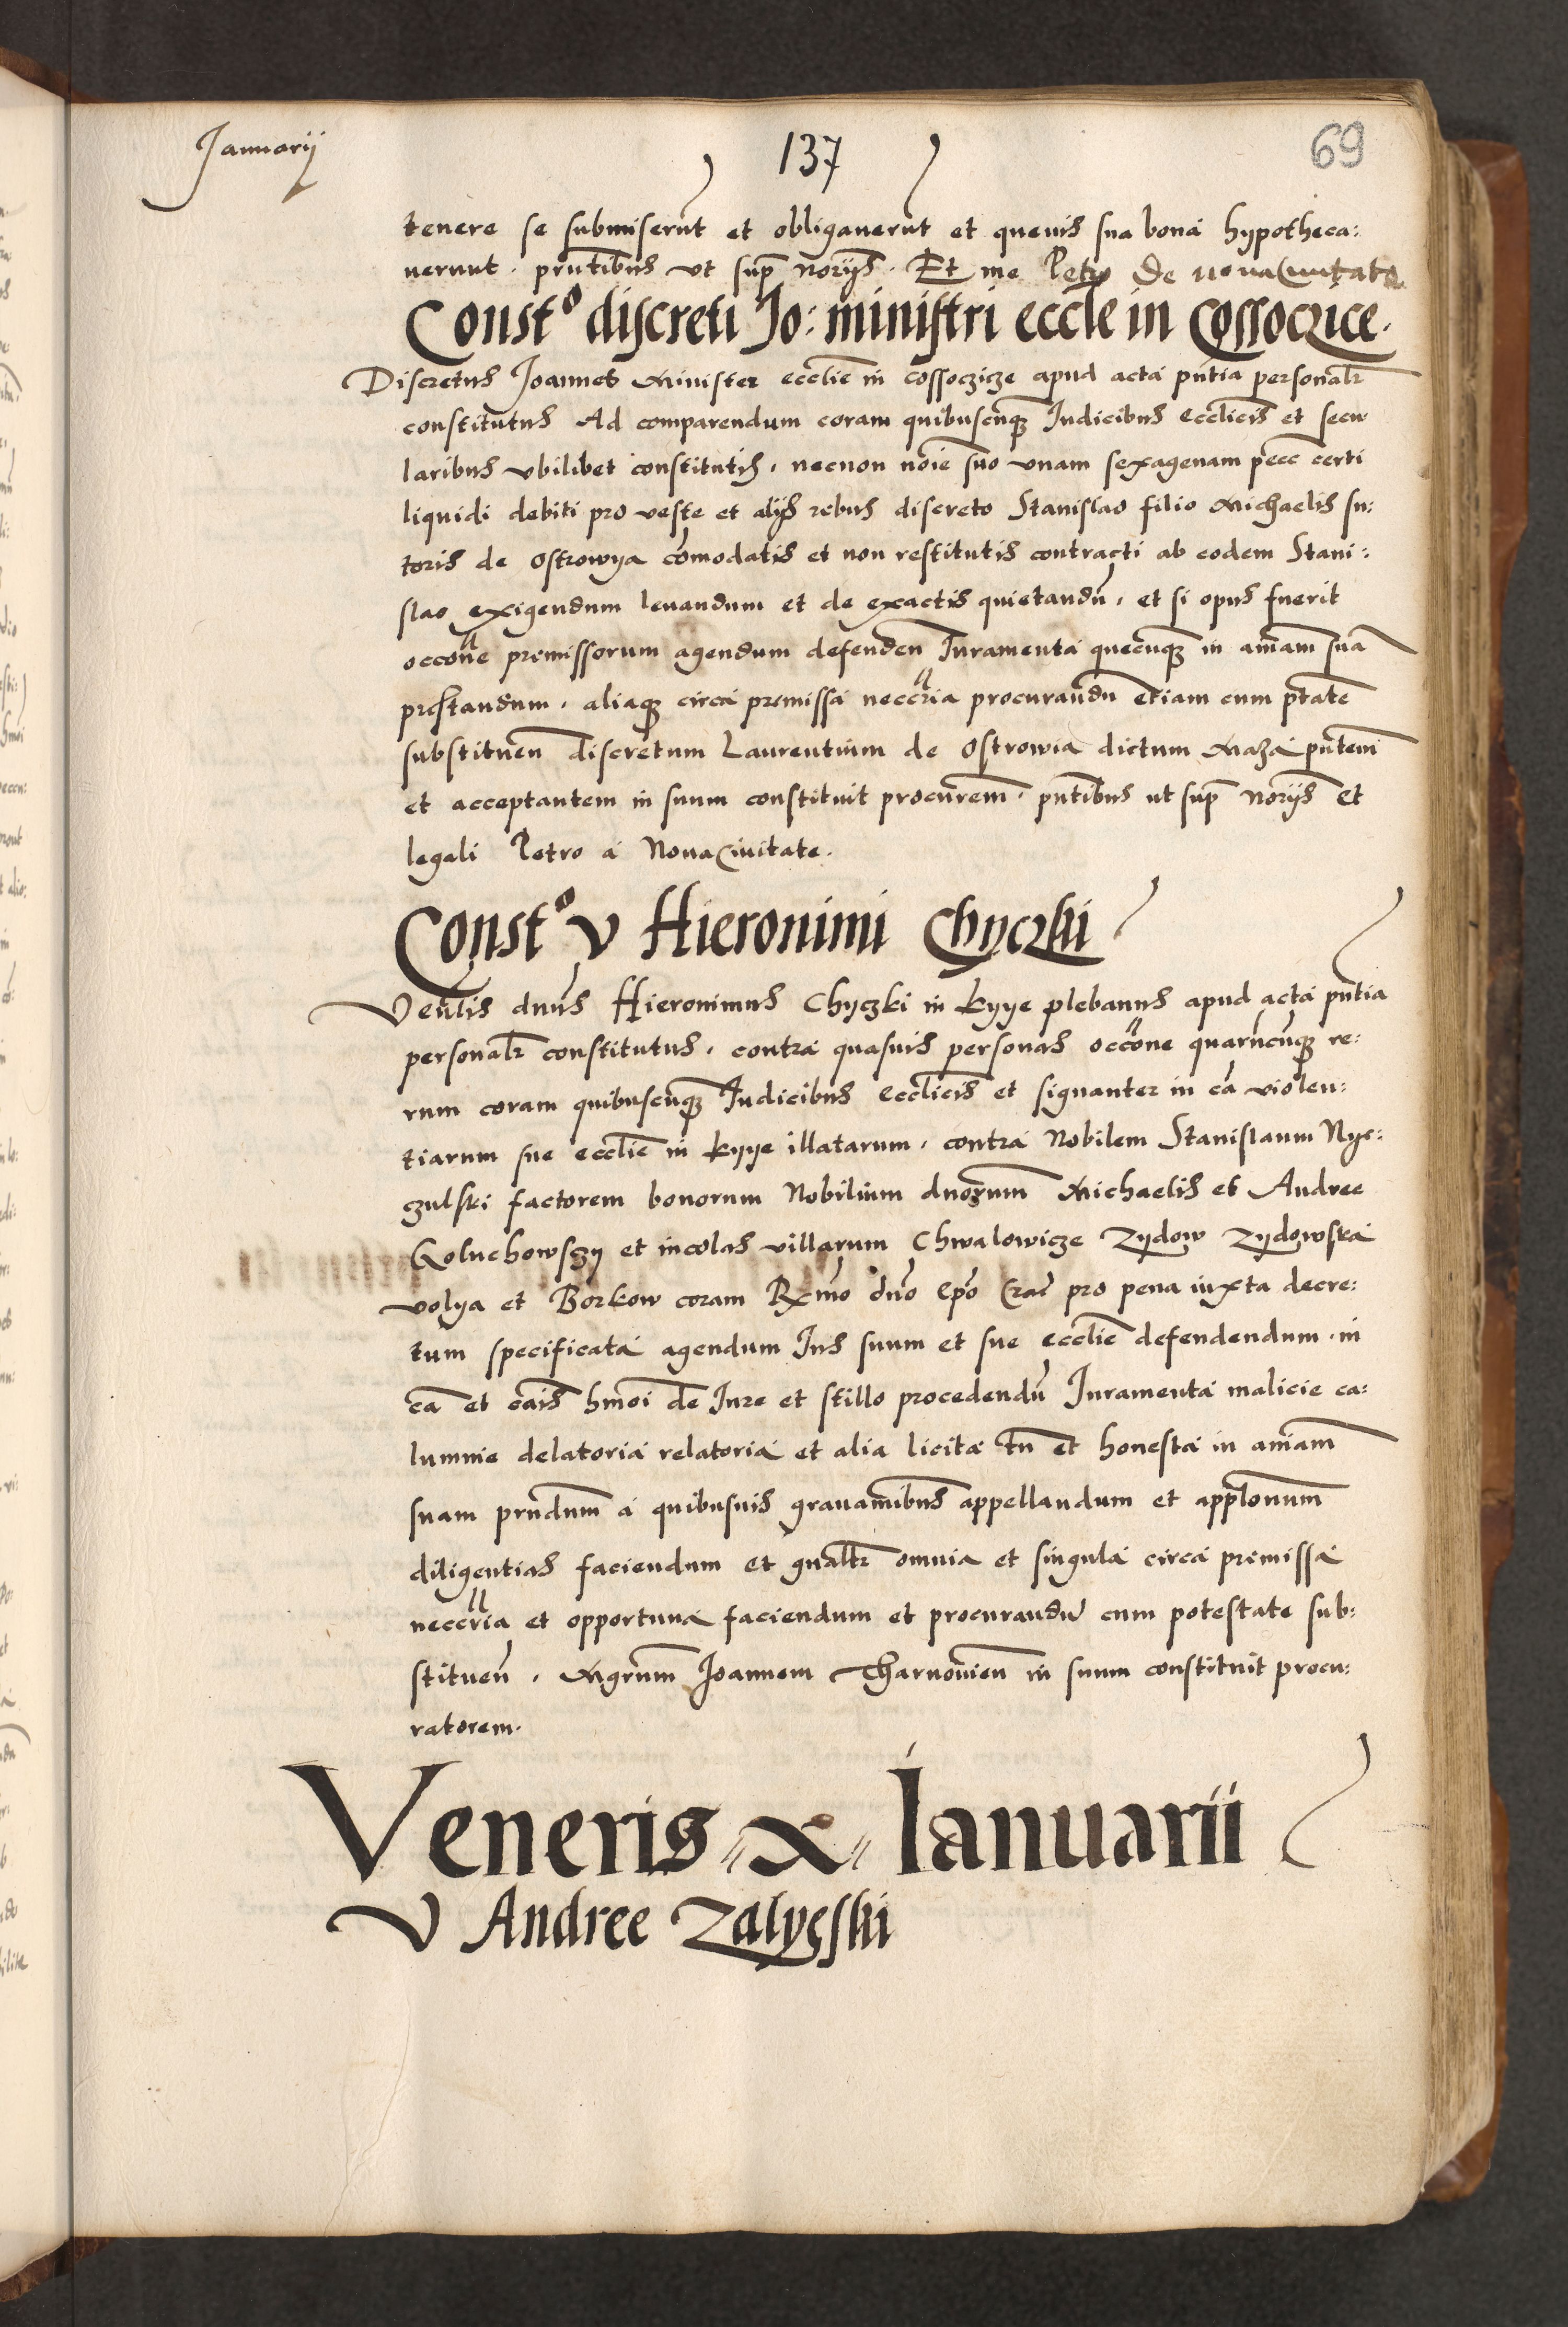 Januarij
137
69
tenere se submiserut et obligaverut et quevis sua bona hypotheca:
verunt. pntibus ut sup noriis. Et me Petro De nova Civitate
Const° discreti Jo: ministri eccle in Cossoczice.
Discretus Joannes Minister ecclie in cossoczicze apud acta pntia personalr
constitutus Ad comparendum coram quibuscuq Judicibus ecclicis et secu
laribus ubilibet constitutis, necnon noie suo unam sexagenam pecc certi
liquidi debiti pro veste et aliis rebus discreto Stanislao filio Michaelis su:
toris de Ostrowya comodatis et non restitutis contracti ab eodem Stani:
slao exigendum levandum et de exactis quietandu, et si opus fuerit
occone premissorum agendum defenden Juramenta quecuq in amam sua
prestandum, aliaq circa premissa neccria procurandu etiam cum ptate
substituen discretum Laurentium de Ostrowia dictum Maza pntem
et acceptantem in suum constituit procurem. pntibus ut sup noriis Et
legali Petro a Nova Civitate.
Const° V Hieronimi Chyczki
Venlis dnus Hieronimus Chyczki in kyye plebanus apud acta pntia
personalr constitutus, contra quasvis personas occone quarucuq re:
rum coram quibuscuq Judicibus ecclicis et signanter in ca violen:
tiarum sue ecclie in kyye illatarum, contra Nobilem Stanislaum Nye:
czulski factorem bonorum Nobilium dnorum Michaelis et Andree
Goluchowsczy et incolas villarum Chwalowicze Zydow Zydowska
volya et Borkow coram Rxmo dno Epo Crac pro pena iuxta decre:
tum specificata agendum Jus suum et sue ecclie defendendum. in
ca et cais hmoi de Jure et stillo procedendu Juramenta malicie ca:
lumnie delatoria relatoria et alia licita tn et honesta in amam
suam prndum a quibusvis gravamibus appellandum et applonum
diligentias faciendum et gnaltr omnia et singula circa premissa
neccria et opportuna faciendum et procurandu cum potestate sub:
stituen. Mgrum Joannem Tharnovien in suum constituit procu:
ratorem.
Veneris x Januarii
V Andree Zalyesski